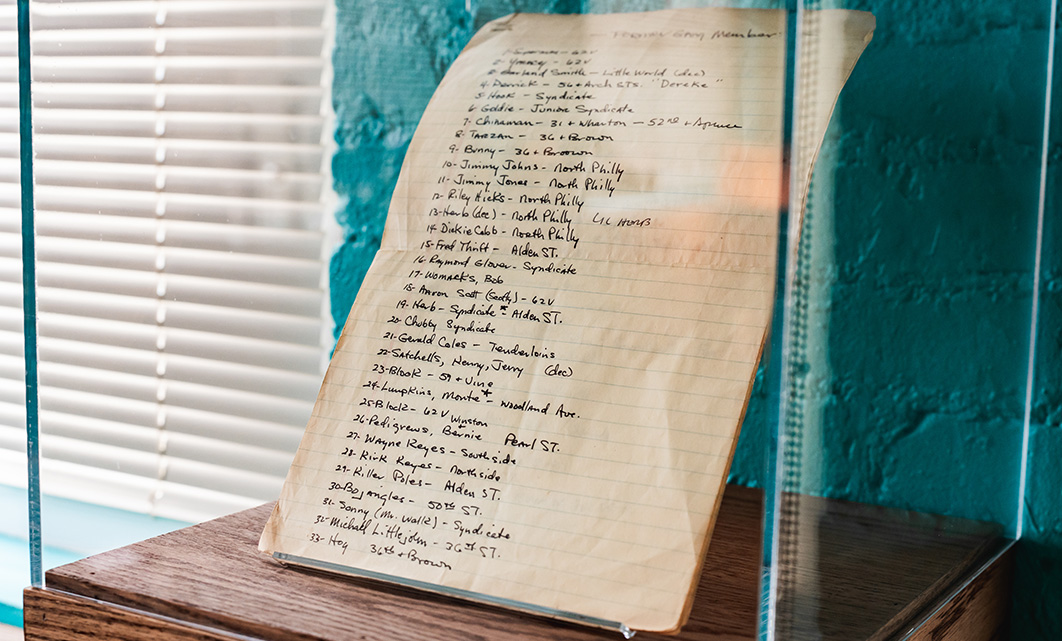 — Former Gang Members
1- Spermon - 62V
2- Yancey - 62V
3- Garland Smith - Little World (dec)
4- Derrick - 56 + Arch STs. "Dereke"
5- Hook - Syndicate
6- Goldie - Junior Syndicate
7- Chinaman - 31 + Wharton - 52nd + Spruce
8- TARZAN - 36 + Brown
9- Bunny - 36 + Broown
10- Jimmy Johns - North Philly
11- Jimmy Jones - North Philly
12- Riley Hicks - North Philly
13- Herb (dec) - North Philly LIL HERB
14- Dickie Cobb - North Philly
15- Fred Thrift - Alden ST.
16- Raymond Glover - Syndicate
17- Womack's, Bob
18- Aaron Scott (Scotty) - 62V
19- Herb - Syndicate * Alden ST.
20- Chubby Syndicate
21- Gerald Coles - Tenderloins
22- Satchells, Henry, Jerry (dec)
23- Blook - 59 + Vine
24- Lumpkins, Monte * - Woodland Ave.
25- Block - 62V Winston
26- Pedigrews, Bernie + Pearl ST.
27- Wayne Keyes - Southside
28- Kirk Keyes - Northside
29- Killer Poles - Alden ST.
30- Bojangles - 50th ST.
31- Sonny (Mr. Walls) - Syndicate
32- Michael Littlejohn - 36th ST.
33- Hog 36th + Brown